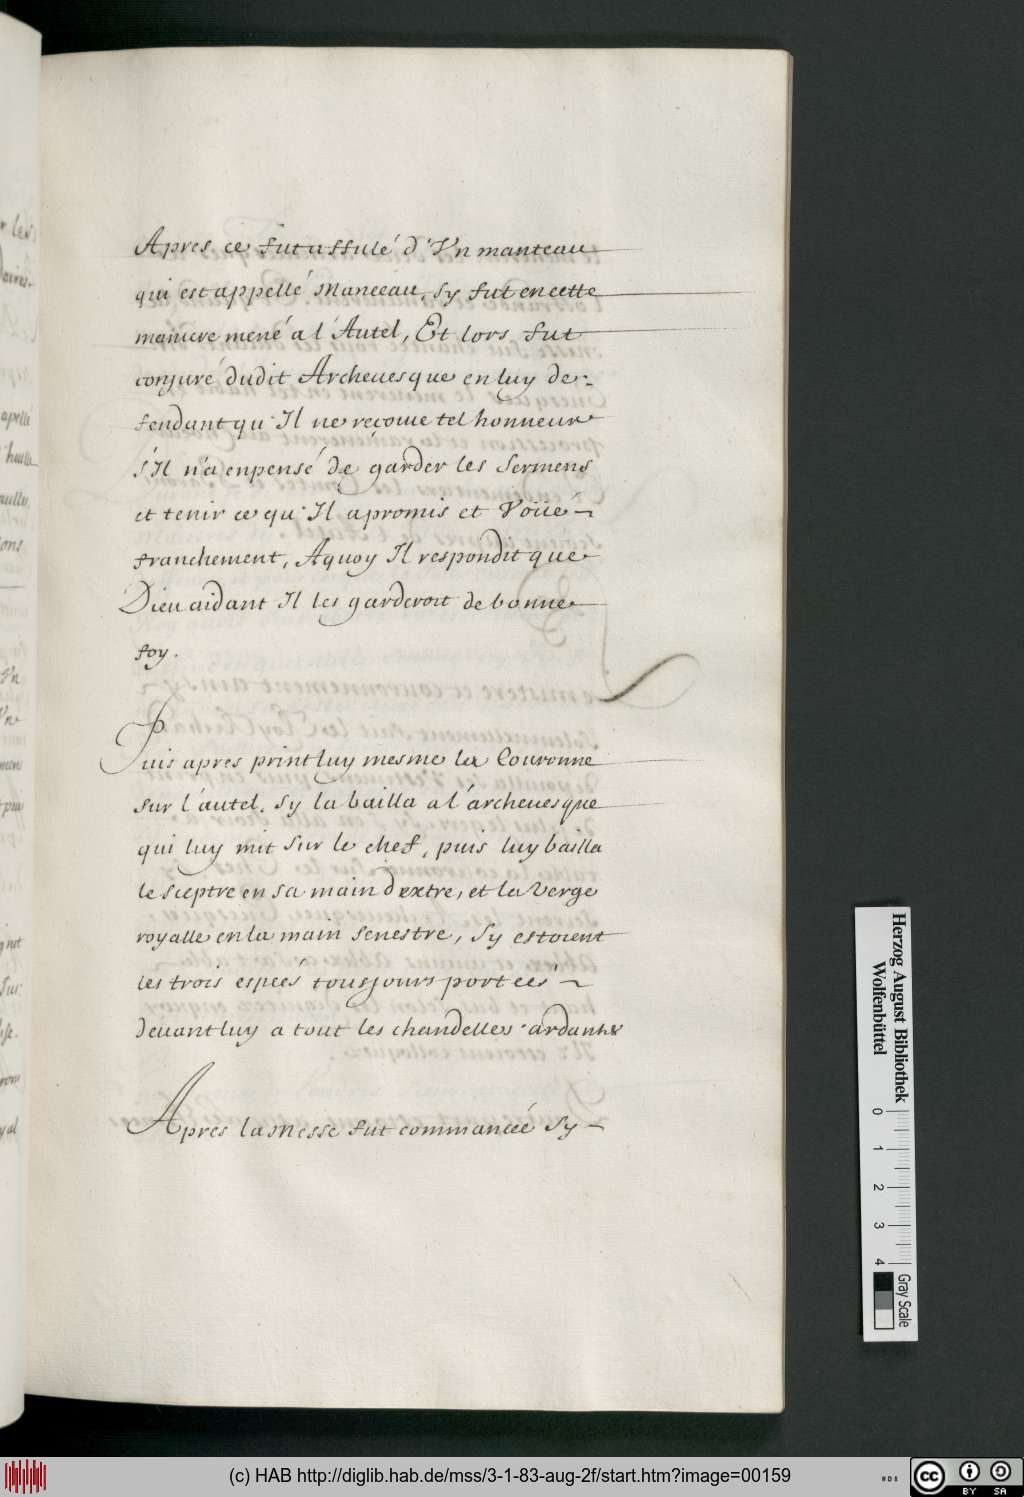 Apres ce fut affulé d'Vn manteau
qui est appellé Manceau, Sy fut en cette
maniere mené a l'Autel, Et lors fut
conjuré dudit Archeuesque en luy de:
fendant qu'Il ne reçoiue tel honneur
s'Il n'a enpensé de garder les Sermens
et tenir ce qu'Il a promis et Voüé
franchement, Aquoy Il respondit que
Dieu aidant Il les garderoit de bonne
foy.
Puis apres print luy mesme la Couronne
sur l'autel, Sy la bailla a l'archeuesque
qui luy mit sur le chef, puis luy bailla
le sceptre en sa main dextre, et la Verge
royalle en la main senestre, Sy estoient
les trois espeés tousjours porteés
deuant luy a tout les chandelles ardantes
Apres la Messe fut commanceé Sy
apellé
ons
Vn
Vne
Herzog August Bibliothek
Wolfenbüttel
0 1 2 3 4
Gray Scale
(c) HAB http://diglib.hab.de/mss/3-1-83-aug-2f/start.htm?image=00159
WDB
cc BY SA